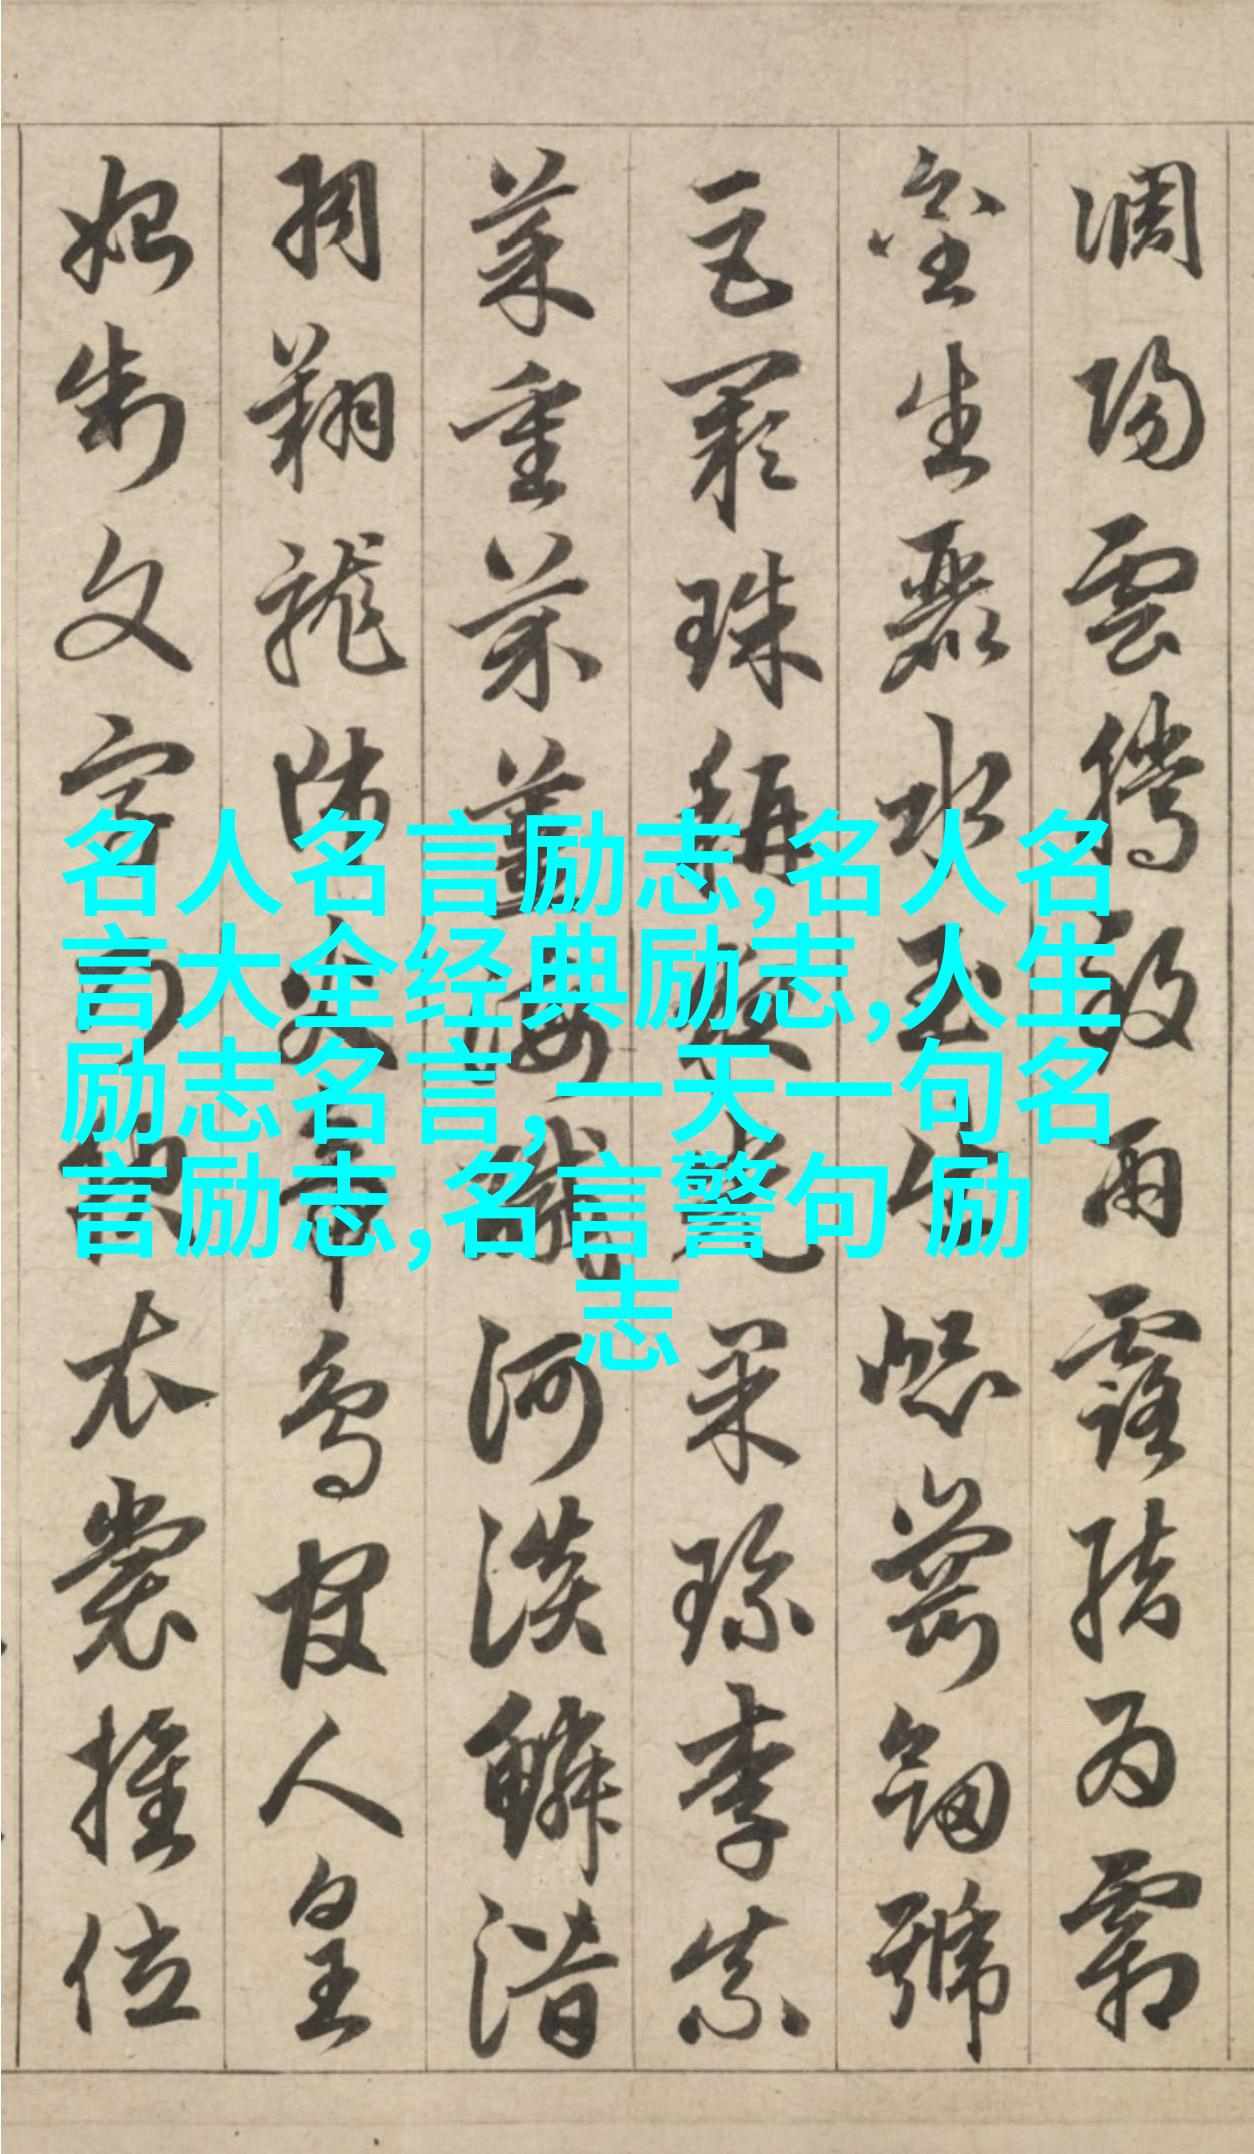 調陽雲騰致雨露結為霜
金生麗水玉出崐崗劒號
巨闕珠稱夜光果珍李柰
菜重芥薑海鹹河淡鱗潛
羽翔龍師火帝鳥官人皇
始制文字乃服衣裳推位
名人名言励志,名人名
言大全经典励志,人生
励志名言,一天一句名
言励志,名言警句 励
志